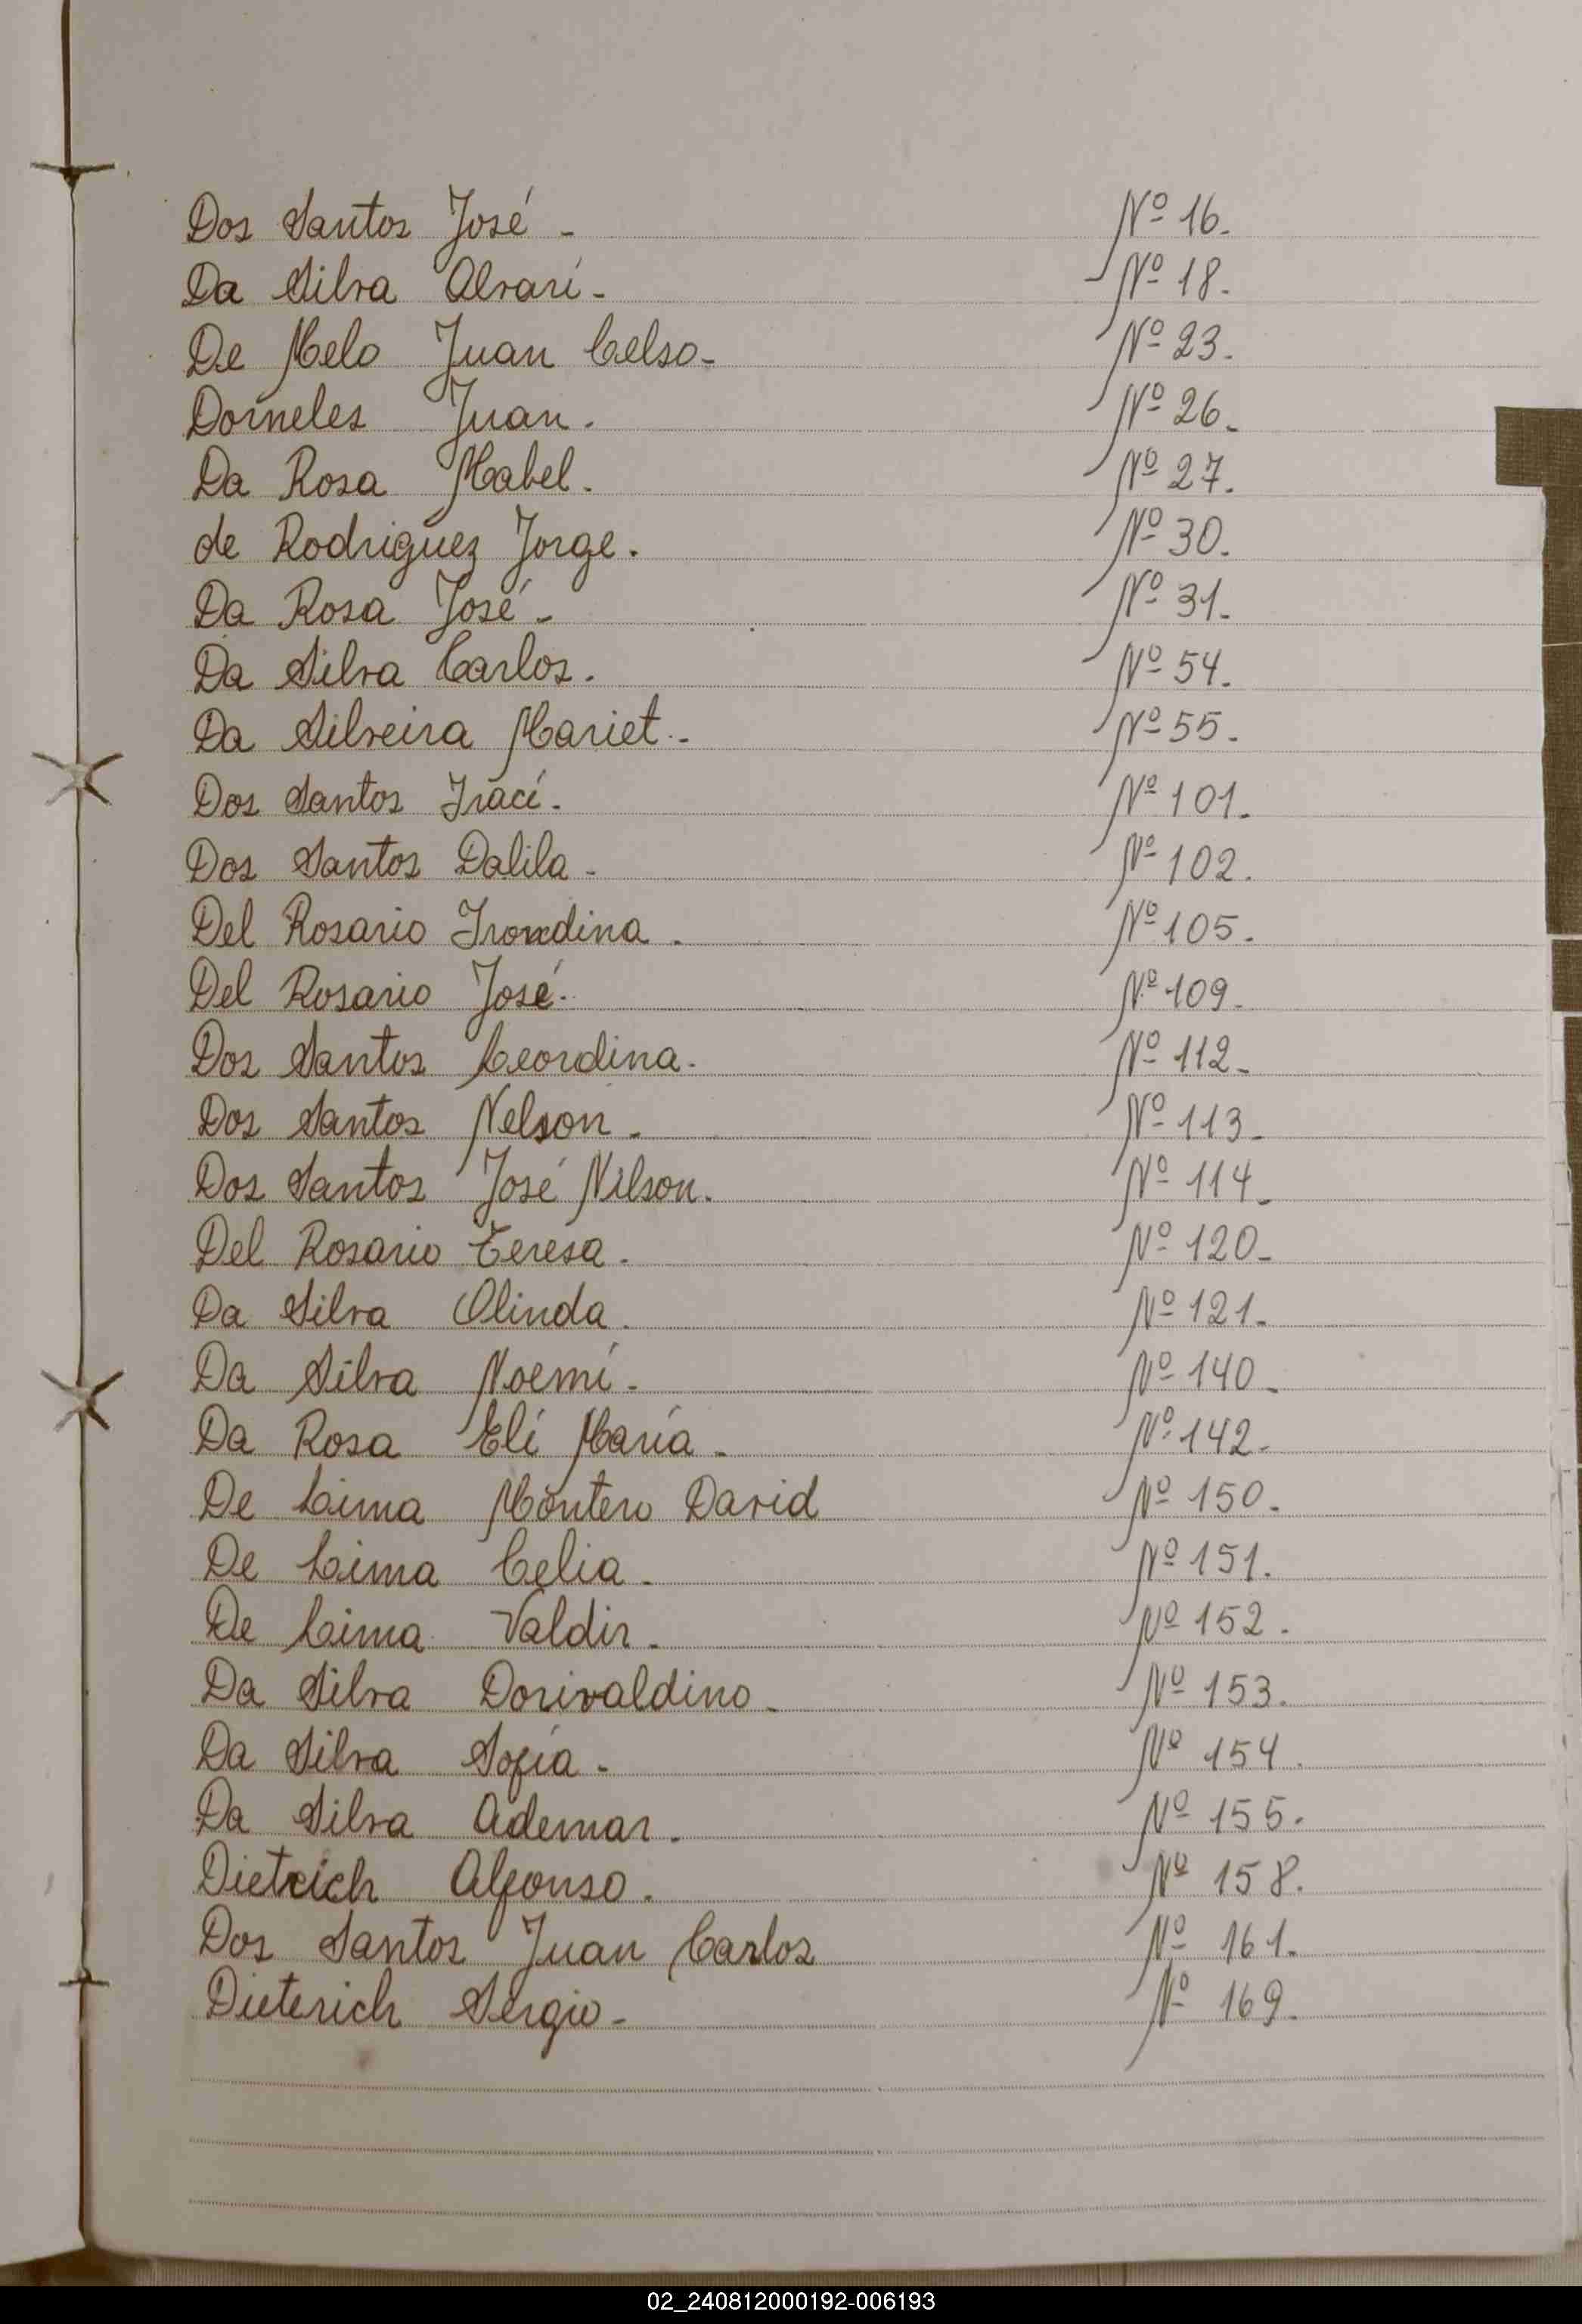 Dos Santos José - Nº 16.
Da Silva Alvari - Nº 18.
De Melo Juan Celso - Nº 23.
Dorneles Juan. Nº 26.
Da Rosa Mabel. Nº 27.
de Rodriguez Jorge. Nº 30.
Da Rosa José - Nº 31.
Da Silva Carlos. Nº 54.
Da Silveira Mariet. - Nº 55.
Dos Santos Iraci. Nº 101.
Dos Santos Dalila - Nº 102.
Del Rosario Nº 105.
Del Rosario José. Nº 109.
Dos Santos Nº 112.
Dos Santos Nelson - Nº 113.
Dos Santos José Nilson. Nº 114.
Del Rosario Teresa. Nº 120.
Da Silva Olinda. Nº 121.
Da Silva Noemí - Nº 140.
Da Rosa Elí María - Nº 142.
De Lima Montero David Nº 150.
De Lima Celia - Nº 151.
De Lima Valdir - Nº 152.
Da Silva Dorivaldino - Nº 153.
Da Silva Sofía - Nº 154.
Da Silva Ademar. Nº 155.
Dietrich Alfonso. Nº 158.
Dos Santos Juan Carlos Nº 161.
Dieterich Sergio - Nº 169.
02_240812000192-006193